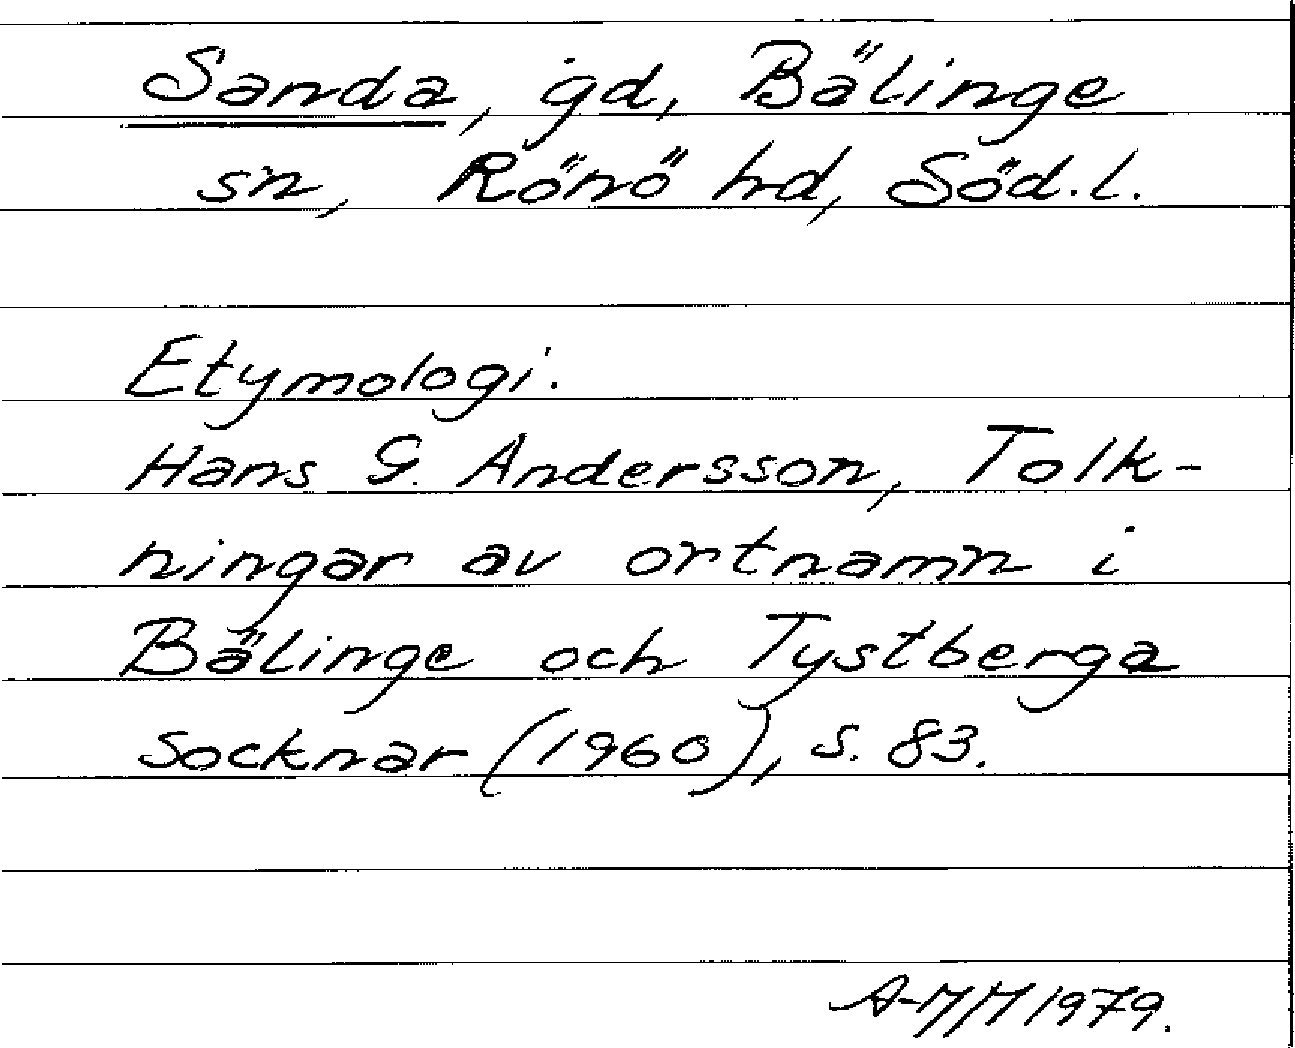 Sanda, gd, Bälinge
sn, Rönö hd, Söd.l.
Etymologi.
Hans G. Andersson, Tolk-
ningar av ortnamn i
Bälinge och Tystberga
socknar (1960), s. 83.
A-MM 1979.